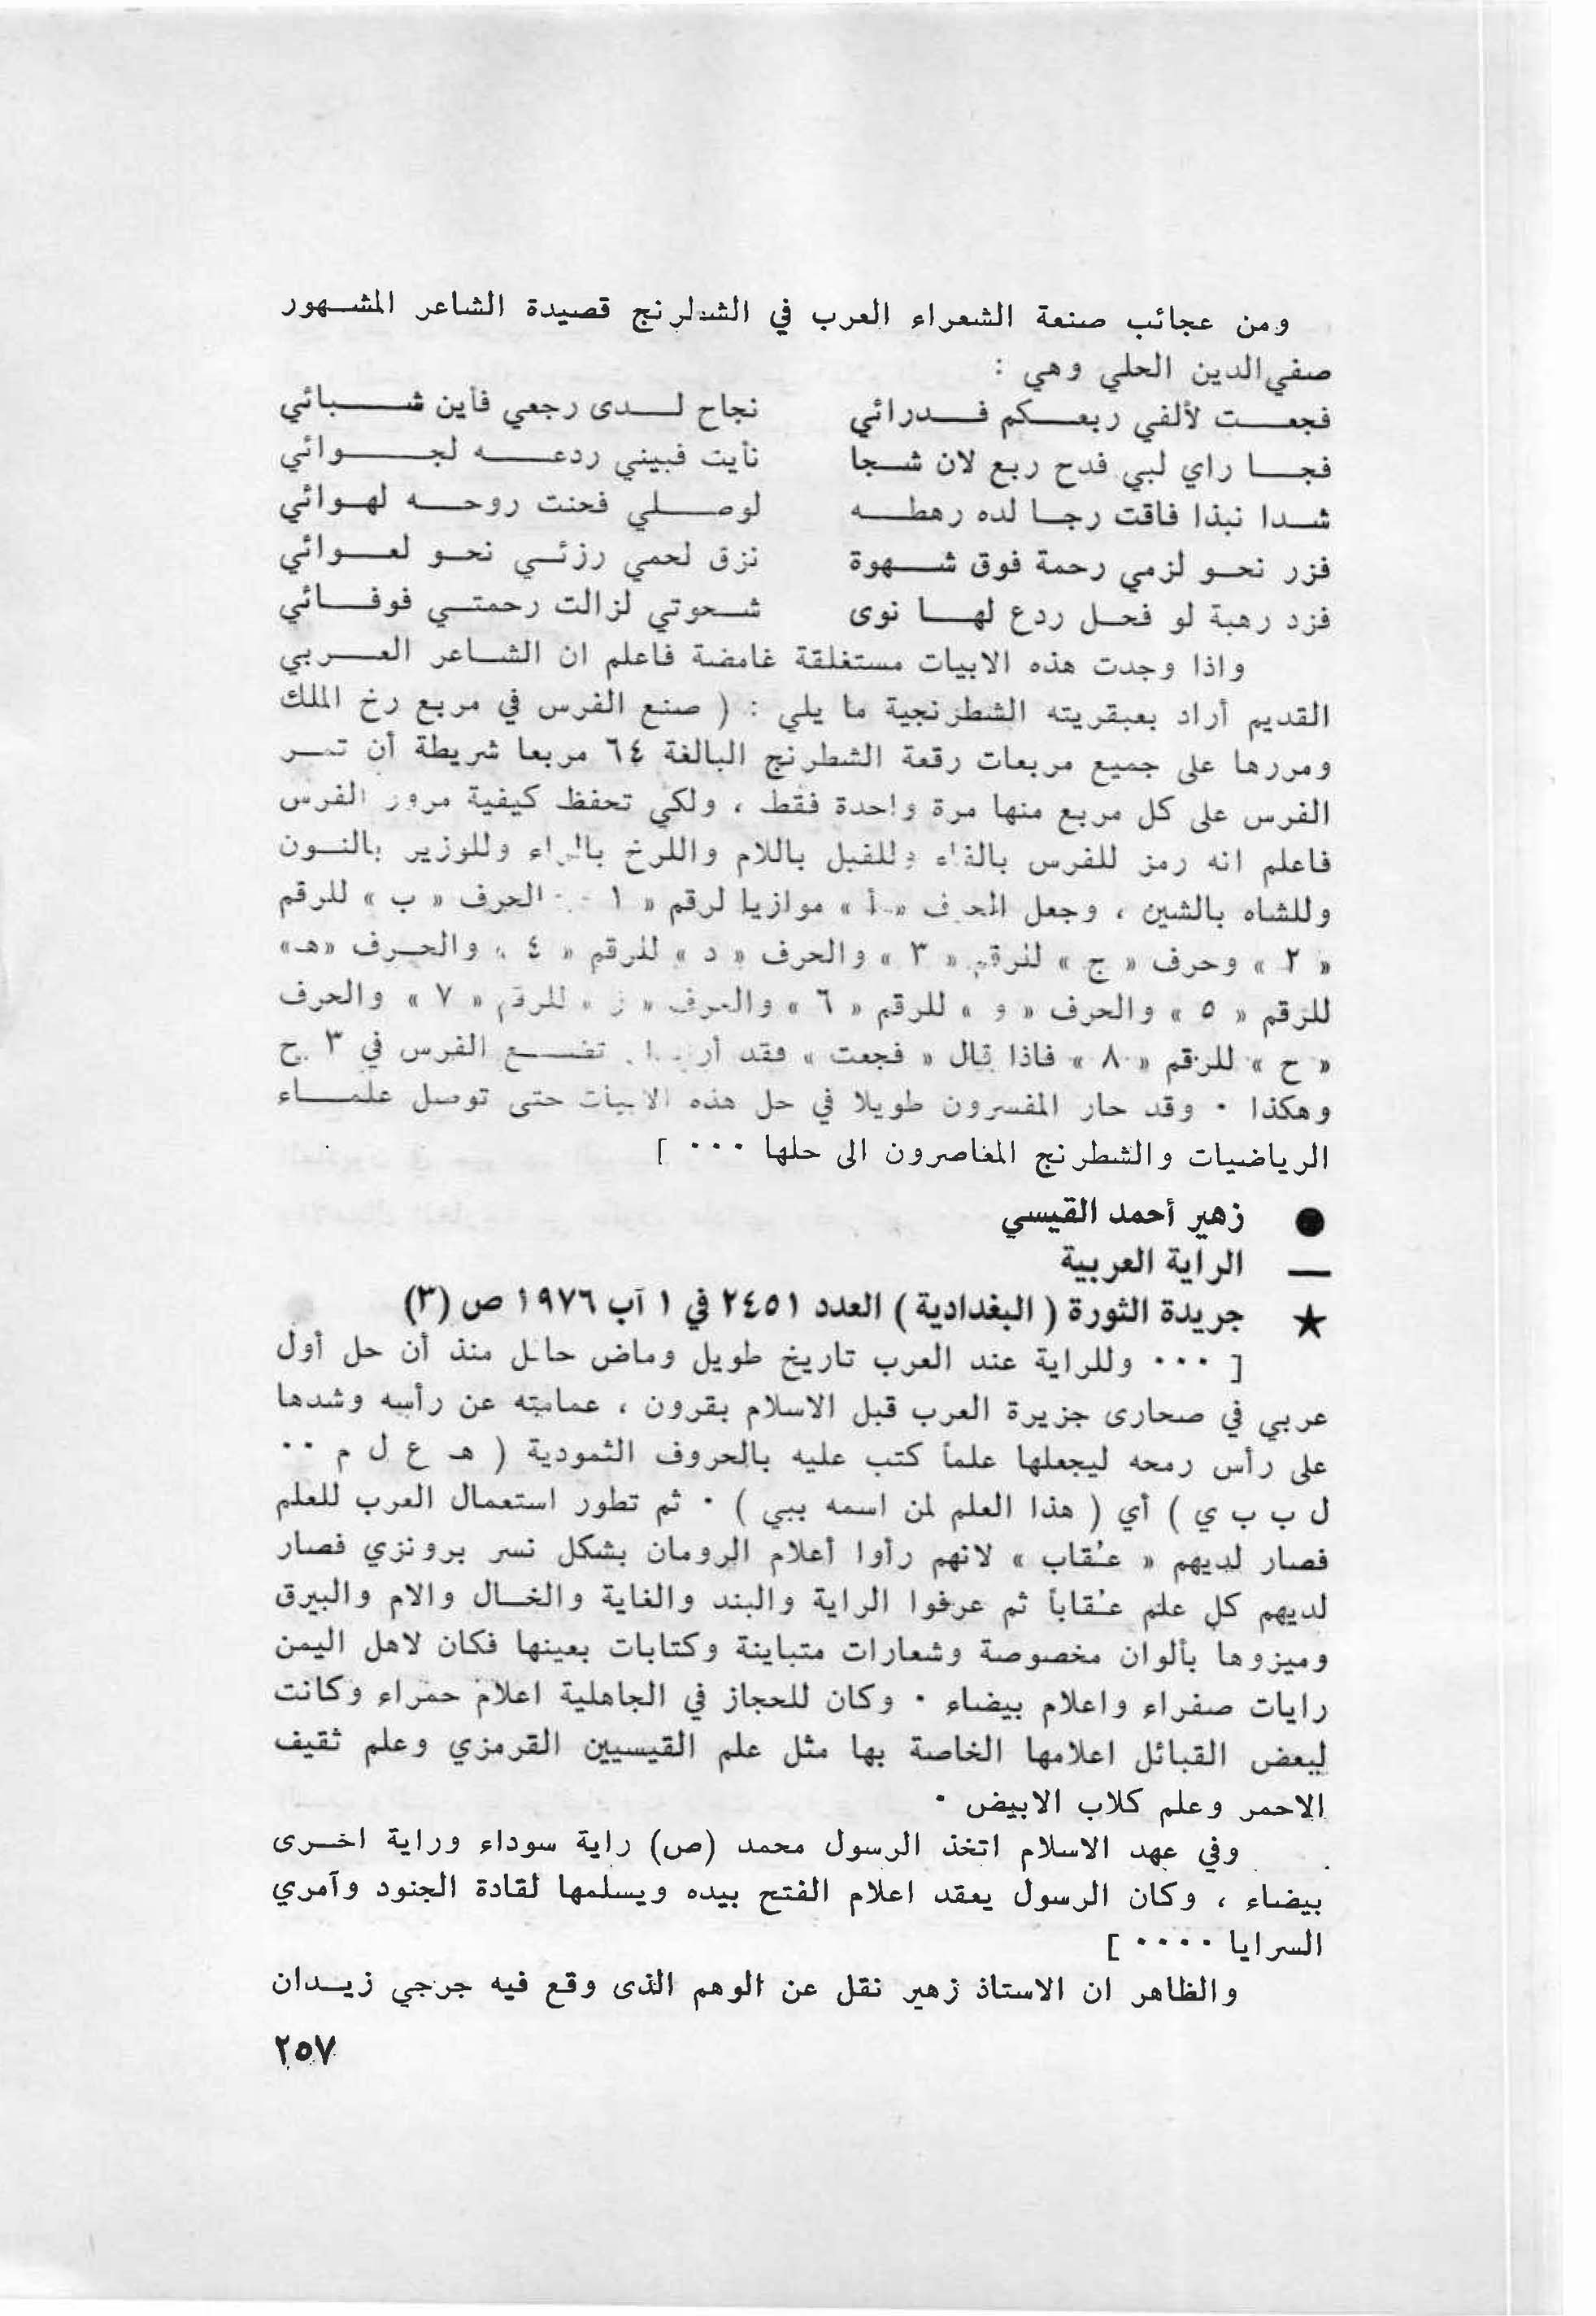 ومن عجائب صنعة الشعراء العرب في الشطرنج قصيدة الشاعر المشهور
صفي‌الدين الحلي وهي :
فجعت لألفي ربعكم فدرائي نجاح لدى رجعي فأين شبائي
فجا راي لبي فدح ربع لان شجا نأيت فبيني ردعه لجوائي
شدا نبذا فاقت رجا لده رهطه لوصلي فحنت روحه لهوائي
فزر نحو لزمي رحمة فوق شهوة نزق لحمي رزئي نحو لعوائي
فزد رهبة لو فحل ردع لها نوى شحوتي لزالت رحمتي فوفائي
واذا وجدت هذه الابيات مستغلقة غامضة فاعلم ان الشاعر العربي
القديم أراد بعبقريته الشطرنجية ما يلي : ( صنع الفرس في مربع رخ الملك
ومررها على جميع مربعات رقعة الشطرنج البالغة ٦٤ مربعا شريطة أن تمر
الفرس على كل مربع منها مرة واحدة فقط ، ولكي تحفظ كيفية مرور الفرس
فاعلم انه رمز للفرس بالفاء وللفيل باللام واللرخ بالراء وللوزير بالنون
وللشاه بالشين ، وجعل الحرف « أ » موازيا لرقم « ١ الحرف « ب » للرقم
« ٢ » وحرف « ج » للرقم « ٣ » والحرف « د » للرقم « ٤ » والحرف «هـ»
للرقم « ٥ » والحرف « و » للرقم « ٦ » والحرف « ز » للرقم « ٧ » والحرف
« ح » للرقم « ٨ » فاذا قال « فجعت » فقد تضع الفرس في ٣ ح
وهكذا ٠ وقد حار المفسرون طويلا في حل هذه الابيات حتى توصل علماء
الرياضيات والشطرنج المعاصرون الى حلها ٠٠٠ ]
● زهير أحمد القيسي
— الراية العربية
★ جريدة الثورة ( البغدادية ) العدد ٢٤٥١ في ١ آب ١٩٧٦ ص (٣)
[ ٠٠٠ وللراية عند العرب تاريخ طويل وماض حافل منذ أن حل أول
عربي في صحارى جزيرة العرب قبل الاسلام بقرون ، عمامته عن رأسه وشدها
على رأس رمحه ليجعلها علماً كتب عليه بالحروف الثمودية ( هـ ع ل م ٠٠
ل ب ب ي ) أي ( هذا العلم لمن اسمه ببي ) ٠ ثم تطور استعمال العرب للعلم
فصار لديهم « عُقاب » لانهم رأوا أعلام الرومان بشكل نسر برونزي فصار
لديهم كل علم عُقاباً ثم عرفوا الراية والبند والغاية والخال والام والبيرق
وميزوها بألوان مخصوصة وشعارات متباينة وكتابات بعينها فكان لاهل اليمن
رايات صفراء واعلام بيضاء ٠ وكان للحجاز في الجاهلية اعلام حمراء وكانت
لبعض القبائل اعلامها الخاصة بها مثل علم القيسيين القرمزي وعلم ثقيف
الاحمر وعلم كلاب الابيض ٠
وفي عهد الاسلام اتخذ الرسول محمد (ص) راية سوداء وراية اخرى
بيضاء ، وكان الرسول يعقد اعلام الفتح بيده ويسلمها لقادة الجنود وآمري
السرايا ٠٠٠٠ ]
والظاهر ان الاستاذ زهير نقل عن الوهم الذى وقع فيه جرجي زيدان
٢٥٧